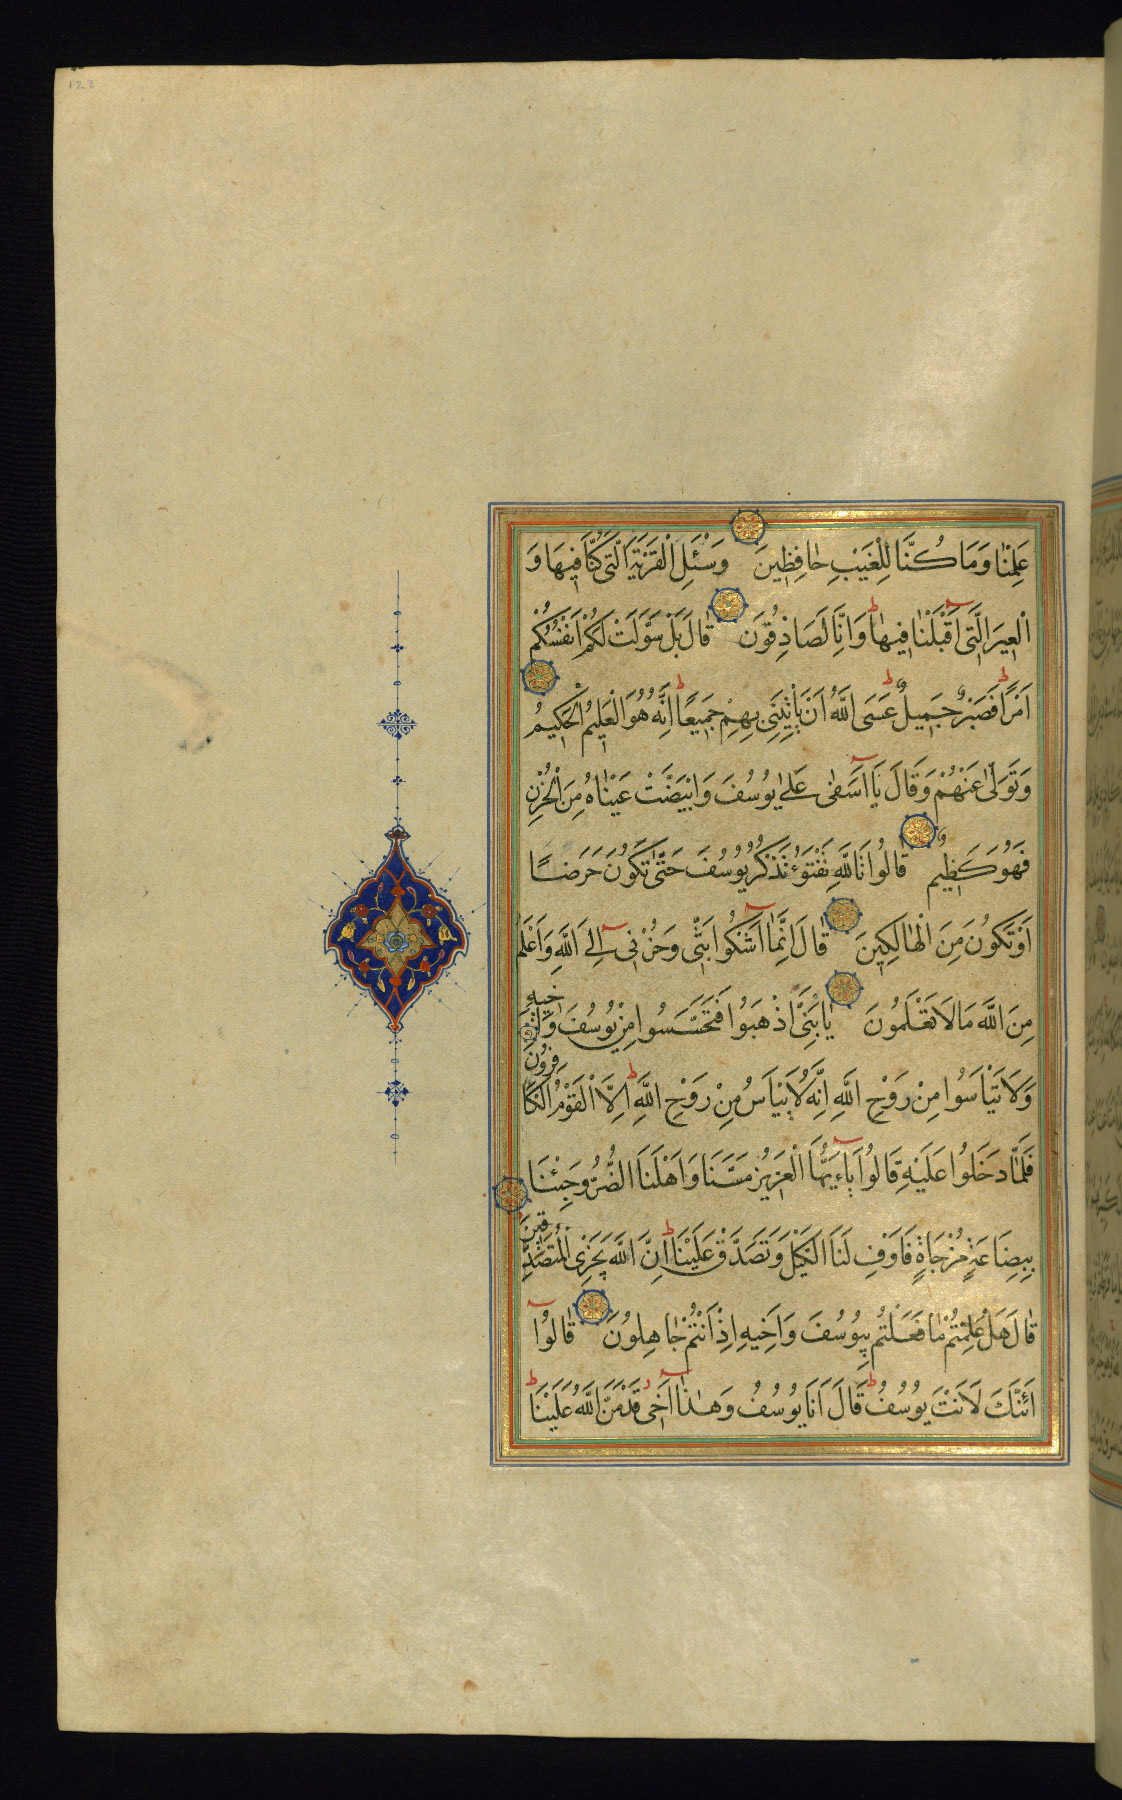 123
عَلِمْنَا وَمَا كُنَّا لِلْغَيْبِ حَافِظِينَ وَسْئَلِ الْقَرْيَةَ الَّتِى كُنَّا فِيهَا وَ
الْعِيرَ الَّتِى اَقْبَلْنَا فِيهَا وَاِنَّا لَصَادِقُونَ قَالَ بَلْ سَوَّلَتْ لَكُمْ اَنْفُسُكُمْ
اَمْرًا فَصَبْرٌ جَمِيلٌ عَسَى اللَّهُ اَنْ يَأْتِيَنِى بِهِمْ جَمِيعًا اِنَّهُ هُوَ الْعَلِيمُ الْحَكِيمُ
وَتَوَلَّى عَنْهُمْ وَقَالَ يَا اَسَفَى عَلَى يُوسُفَ وَابْيَضَّتْ عَيْنَاهُ مِنَ الْحُزْنِ
فَهُوَ كَظِيمٌ قَالُوا تَاللَّهِ تَفْتَؤُ تَذْكُرُ يُوسُفَ حَتَّى تَكُونَ حَرَضًا
اَوْ تَكُونَ مِنَ الْهَالِكِينَ قَالَ اِنَّمَا اَشْكُوا بَثِّى وَحُزْنِى اِلَى اللَّهِ وَاَعْلَمُ
مِنَ اللَّهِ مَا لَا تَعْلَمُونَ يَا بَنِىَّ اذْهَبُوا فَتَحَسَّسُوا مِنْ يُوسُفَ وَاَخِيهِ
وَلَا تَيْأَسُوا مِنْ رَوْحِ اللَّهِ اِنَّهُ لَا يَيْأَسُ مِنْ رَوْحِ اللَّهِ اِلَّا الْقَوْمُ الْكَافِرُونَ
فَلَمَّا دَخَلُوا عَلَيْهِ قَالُوا يَا ءَيُّهَا الْعَزِيزُ مَسَّنَا وَاَهْلَنَا الضُّرُّ وَجِئْنَا
بِبِضَاعَةٍ مُزْجَاةٍ فَاَوْفِ لَنَا الْكَيْلَ وَتَصَدَّقْ عَلَيْنَا اِنَّ اللَّهَ يَجْزِى الْمُتَصَدِّقِينَ
قَالَ هَلْ عَلِمْتُمْ مَا فَعَلْتُمْ بِيُوسُفَ وَاَخِيهِ اِذْ اَنْتُمْ جَاهِلُونَ قَالُوا
اَئِنَّكَ لَاَنْتَ يُوسُفُ قَالَ اَنَا يُوسُفُ وَهَذَا اَخِى قَدْ مَنَّ اللَّهُ عَلَيْنَا